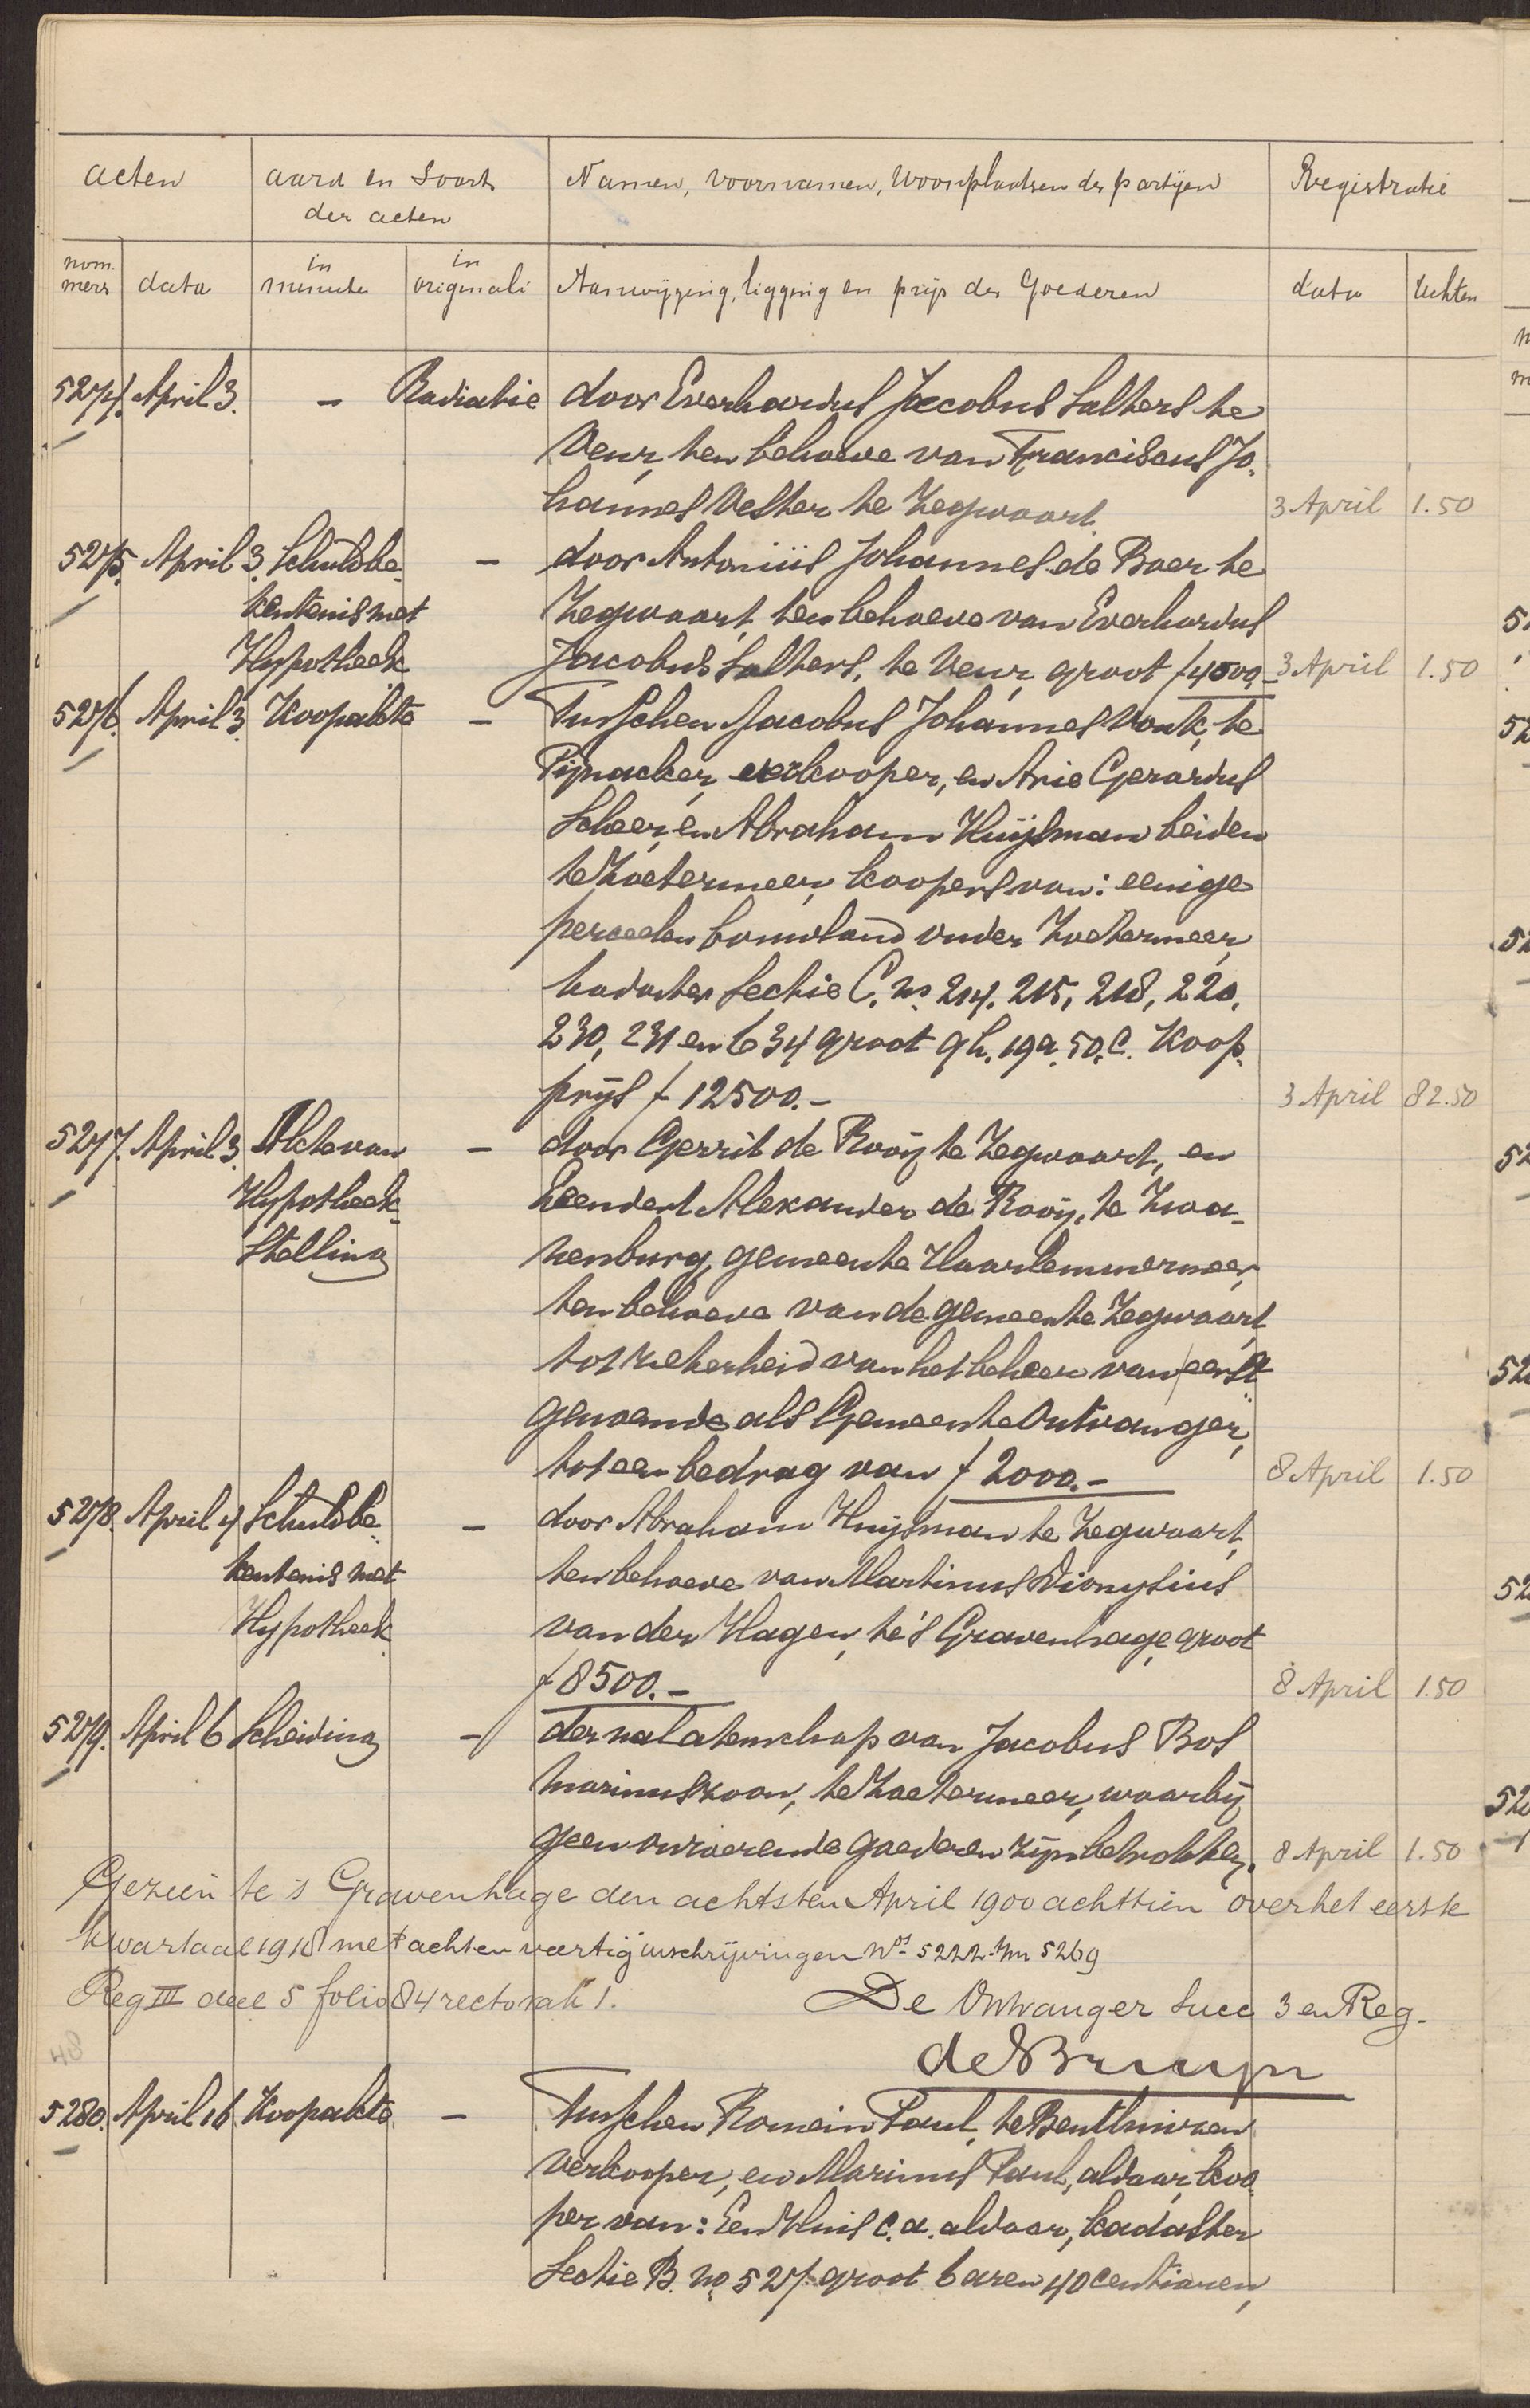 acten aard en Soort Namen, voornamen, woonplaatsen der partijen Registratie
der acten
nom. in in
mers data minute originali Aanwijzing, ligging en prijs der Goederen data rechten
5274. April 3. - Radiatie door Everhardus Jacobus Salters te
Veur, ten behoeve van Franciscus Jo-
hannes Vester te Zegwaart 3 April 1.50
5275. April 3. Schuldbe- - door Antoniüs Johannes de Boer te
kentenis met Zegwaart, ten behoeve van Everhardus
Hypotheek Jacobus Salters, te Veur, groot f 4000.- 3 April 1.50
5276. April 3. Koopakte - Tusschen Jacobus Johannes Vonk, te
Pijnacker, verkooper, en Arie Gerardus
Scheer, en Abraham Huijsman beiden
te Zoetermeer, koopers van: eenige
perceelen bouwland onder Zoetermeer,
kadaster Sectie C. no. 214. 215, 218, 220,
230, 231 en 634 groot 9 h. 19 a. 50. C. Koop-
prijs f 12500.- 3 April 82.50
5277. April 3. Akte van - door Gerrit de Rooij te Zegwaart, en
Hypotheek- Leendert Alexander de Rooij, te Zwa-
Stelling nenburg, gemeente Haarlemmermeer,
ten behoeve van de gemeente Zegwaart
tot zekerheid van het beheer van eerst
genoemde als Gemeente Ontvanger,
tot een bedrag van f 2000.- 8 April 1.50
5278. April 4 Schuldbe- - door Abraham Huijsman te Zegwaart,
kentenis met ten behoeve van Martinus Dionysius
Hypotheek van der Hagen, te 's Gravenhage, groot
f 8500.- 8 April 1.50
5279. April 6 Scheiding - der nalatenschap van Jacobus Bos
Marinuszoon, te Zoetermeer, waarbij
geen onroerende goederen zijn betrokken. 8 April 1.50
Gezien te 's Gravenhage den achtsten April 1900 achttien over het eerste
kwartaal 1918 met acht en veertig inschrijvingen Nos 5222 t/m 5269
Reg III deel 5 folio 84 recto vak 1. De Ontvanger Succ 3 en Reg.
84 de Bruyn
5280. April 16 Koopakte - Tusschen Romein Paul, te Benthuizen
verkooper, en Marinus Paul, aldaar, koo-
per van: Een Huis c.a. aldaar, kadaster
Sectie B. no. 527 groot 6 aren 40 centiaren,